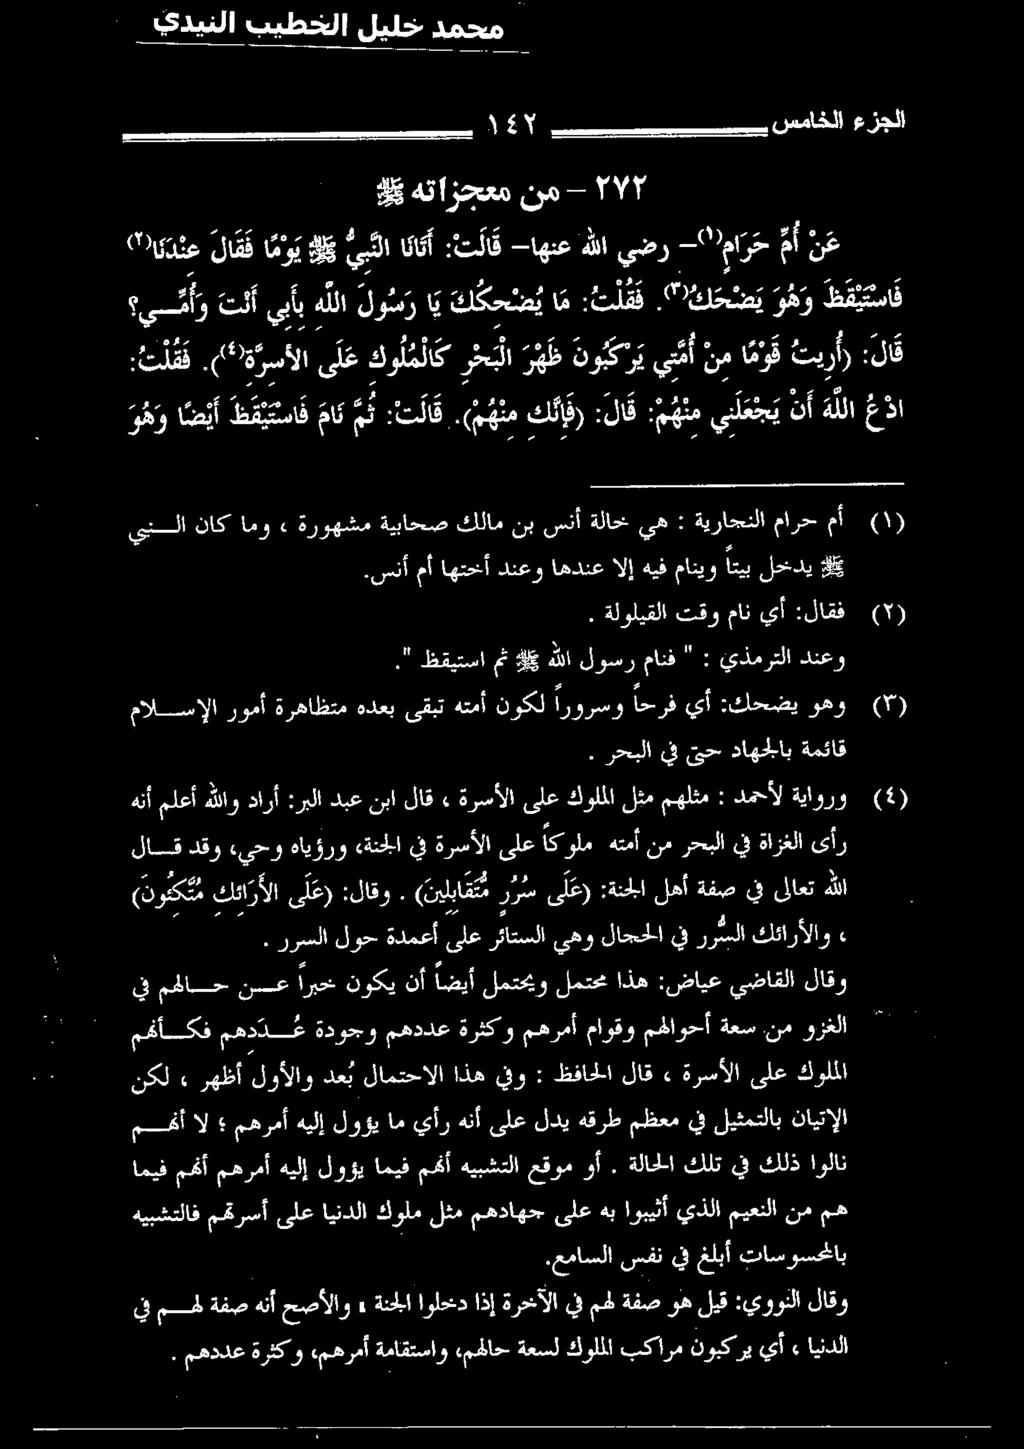 محمد خليل الخطيب النيدي
الجزء الخامس ١٤٢
٢٧٢ – من معجزاته ﷺ
عَنْ أُمِّ حَرَامٍ(١) – رضي الله عنها – قَالَتْ: أَتَانَا النَّبِيُّ ﷺ يَوْمًا فَقَالَ عِنْدَنَا(٢)
فَاسْتَيْقَظَ وَهُوَ يَضْحَكُ(٣). فَقُلْتُ: مَا يُضْحِكُكَ يَا رَسُولَ اللهِ بِأَبِي أَنْتَ وَأُمِّــي؟
قَالَ: (أُرِيتُ قَوْمًا مِنْ أُمَّتِي يَرْكَبُونَ ظَهْرَ الْبَحْرِ كَالْمُلُوكِ عَلَى الأَسِرَّةِ(٤)). فَقُلْتُ:
ادْعُ اللَّهَ أَنْ يَجْعَلَنِي مِنْهُمْ: قَالَ: (فَإِنَّكِ مِنْهُمْ). قَالَتْ: ثُمَّ نَامَ فَاسْتَيْقَظَ أَيْضًا وَهُوَ
(١) أم حرام النجارية : هي خالة أنس بن مالك صحابية مشهورة ، وما كان النــبي
ﷺ يدخل بيتاً وينام فيه إلا عندها وعند أختها أم أنس.
(٢) فقال: أي نام وقت القيلولة .
وعند الترمذي : " فنام رسول الله ﷺ ثم استيقظ ".
(٣) وهو يضحك: أي فرحاً وسروراً لكون أمته تبقى بعده متظاهرة أمور الإســلام
قائمة بالجهاد حتى في البحر .
(٤) ورواية لأحمد : مثلهم مثل الملوك على الأسرة ، قال ابن عبد البر: أراد والله أعلم أنه
رأى الغزاة في البحر من أمته ملوكاً على الأسرة في الجنة، ورؤياه وحي، وقد قــال
الله تعالى في صفة أهل الجنة: (عَلَى سُرُرٍ مُّتَقَابِلِينَ) . وقال: (عَلَى الأَرَائِكِ مُتَّكِئُونَ)
، والأرائك السُّرر في الحجال وهي الستائر على أعمدة حول السرر .
وقال القاضي عياض: هذا محتمل ويحتمل أيضاً أن يكون خبراً عــن حــالهم في
الغزو من سعة أحوالهم وقوام أمرهم وكثرة عددهم وجودة عُــدَدِهم فكــأنهم
الملوك على الأسرة ، قال الحافظ : وفي هذا الاحتمال بُعد والأول أظهر ، لكن
الإتيان بالتمثيل في معظم طرقه يدل على أنه رأي ما يؤول إليه أمرهم ؛ لا أنهــم
نالوا ذلك في تلك الحالة . أو موقع التشبيه أنهم فيما يؤول إليه أمرهم أنهم فيما
هم من النعيم الذي أثيبوا به على جهادهم مثل ملوك الدنيا على أسرتهم فالتشبيه
بالمحسوسات أبلغ في نفس السامع.
وقال النووي: قيل هو صفة لهم في الآخرة إذا دخلوا الجنة ، والأصح أنه صفة لهــم في
الدنيا ، أي يركبون مراكب الملوك لسعة حالهم، واستقامة أمرهم، وكثرة عددهم .